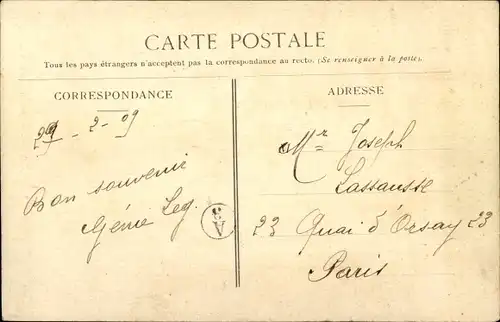 CARTE POSTALE
Tous les pays étrangers n'acceptent pas la correspondance au recto. (Se renseigner à la poste).
CORRESPONDANCE
-2-09
Bon souvenir
ADRESSE
Mr Joseph
Lassausse
23 Quai d'Orsay 23
Paris